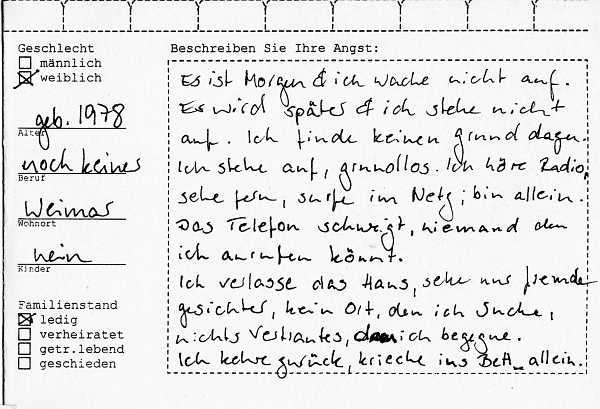 Geschlecht
männlich
weiblich
geb. 1978
Alter
noch keinen
Beruf
Weimar
Wohnort
nein
Kinder
Familienstand
ledig
verheiratet
getr.lebend
geschieden
Beschreiben Sie Ihre Angst:
Es ist Morgen & ich wache nicht auf.
Es wird später & ich stehe nicht
auf. Ich finde keinen grund dagen.
Ich stehe auf, grundlos. Ich höre Radio,
sehe fern, surfe im Netz; bin allein.
Das Telefon schweigt, niemand den
ich anrufen könnt.
Ich verlasse das Haus, sehe nur fremde
gesichter, kein Ort, den ich suche,
nichts Vertrautes, dem ich begegne.
Ich kehre zurück, krieche ins Bett_ allein.